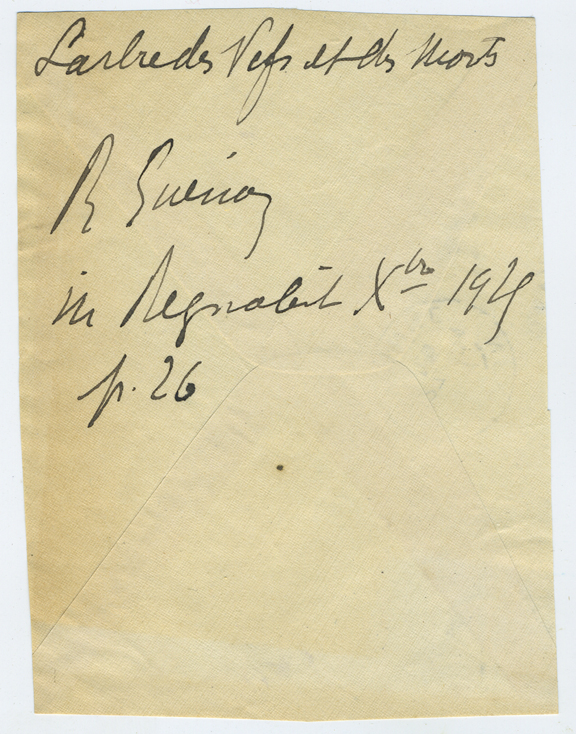 L'arbre des Vifs et des Morts
R Guénon
in Regnabit Xbre 1925
p. 26